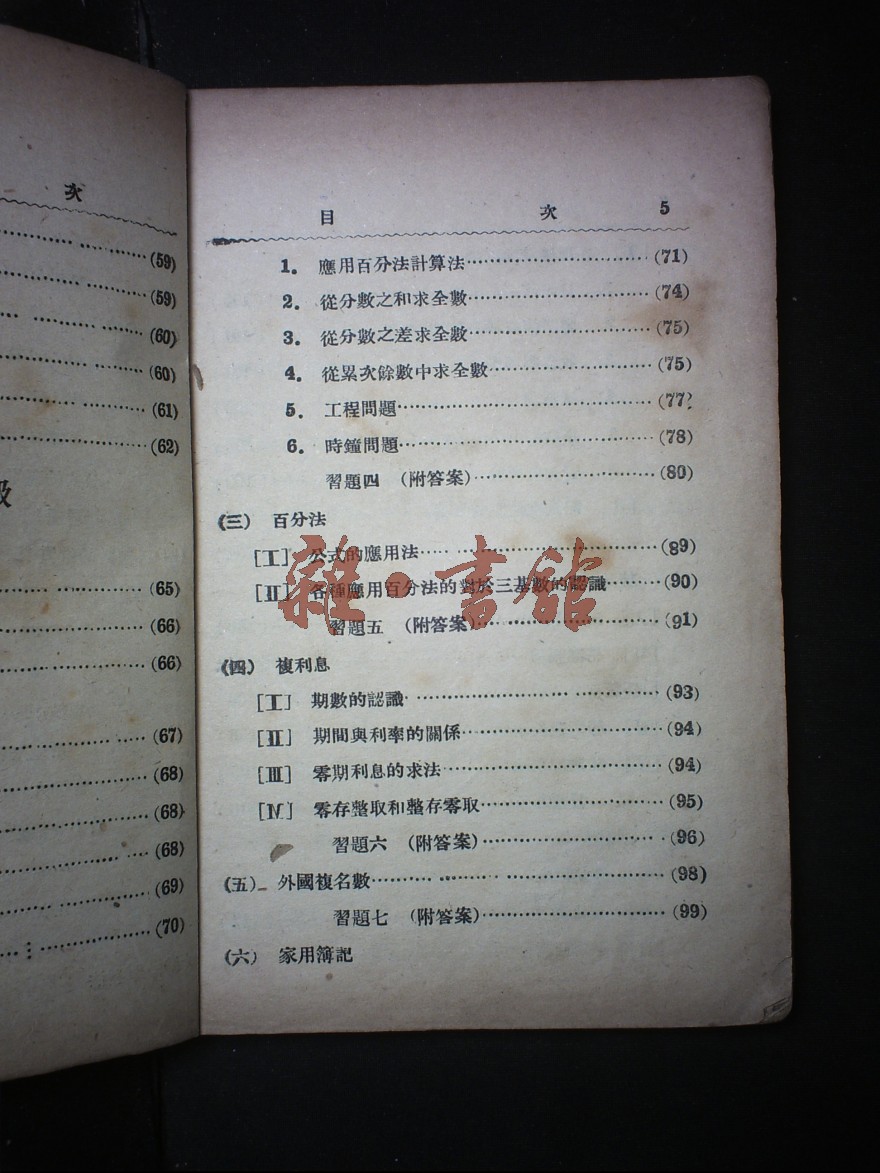 次
(59)
(59)
(60)
(60)
(61)
(62)
級
(65)
(66)
(66)
(67)
(68)
(68)
(68)
(69)
(70)
目 次 5
1. 應用百分法計算法 (71)
2. 從分數之和求全數 (74)
3. 從分數之差求全數 (75)
4. 從累次餘數中求全數 (75)
5. 工程問題 (77)
6. 時鐘問題 (78)
習題四 (附答案) (80)
(三) 百分法
[Ⅰ] 公式的應用法 (89)
[Ⅱ] 各種應用百分法的對於三基數的認識 (90)
習題五 (附答案) (91)
(四) 複利息
[Ⅰ] 期數的認識 (93)
[Ⅱ] 期間與利率的關係 (94)
[Ⅲ] 零期利息的求法 (94)
[Ⅳ] 零存整取和整存零取 (95)
習題六 (附答案) (96)
(五) 外國複名數 (98)
習題七 (附答案) (99)
(六) 家用簿記
雜·書館